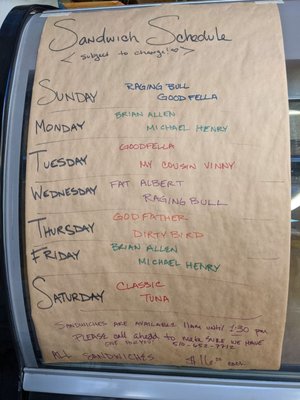 Sandwich Schedule
< subject to change!! >
SUNDAY RAGING BULL
GOODFELLA
MONDAY BRIAN ALLEN
MICHAEL HENRY
TUESDAY GOODFELLA
MY COUSIN VINNY
WEDNESDAY FAT ALBERT
RAGING BULL
THURSDAY GODFATHER
DIRTY BIRD
FRIDAY BRIAN ALLEN
MICHAEL HENRY
SATURDAY CLASSIC
TUNA
SANDWICHES ARE AVAILABLE 11AM UNTIL 1:30 pm
PLEASE CALL ahead to make SURE WE HAVE
ONE FOR YOU! 510-652-7712
ALL SANDWICHES $16.00 each